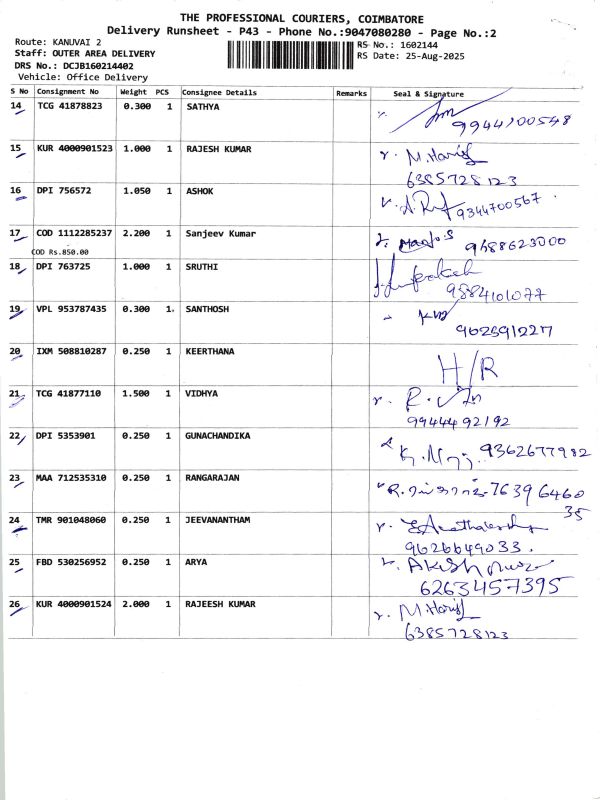 THE PROFESSIONAL COURIERS, COIMBATORE
Delivery Runsheet - P43 - Phone No.:9047080280 - Page No.:2
Route: KANUVAI 2
RS No.: 1602144
Staff: OUTER AREA DELIVERY
RS Date: 25-Aug-2025
DRS No.: DCJB160214402
Vehicle: Office Delivery
S No Consignment No Weight PCS Consignee Details Remarks Seal & Signature
14 TCG 41878823 0.300 1 SATHYA
9944700548
15 KUR 4000901523 1.000 1 RAJESH KUMAR M. Harish
6385728123
16 DPI 756572 1.050 1 ASHOK 9344700567
17 COD 1112285237 2.200 1 Sanjeev Kumar 9488623000
COD Rs.850.00
18 DPI 763725 1.000 1 SRUTHI
9884101077
19 VPL 953787435 0.300 1 SANTHOSH
962591227
20 IXM 508810287 0.250 1 KEERTHANA H/R
21 TCG 41877110 1.500 1 VIDHYA
9944492192
22 DPI 5353901 0.250 1 GUNACHANDIKA 9362677982
23 MAA 712535310 0.250 1 RANGARAJAN 76396460
35
24 TMR 901048060 0.250 1 JEEVANANTHAM
9626649033.
25 FBD 530256952 0.250 1 ARYA
6263457395
26 KUR 4000901524 2.000 1 RAJEESH KUMAR M. Harish
6385728123